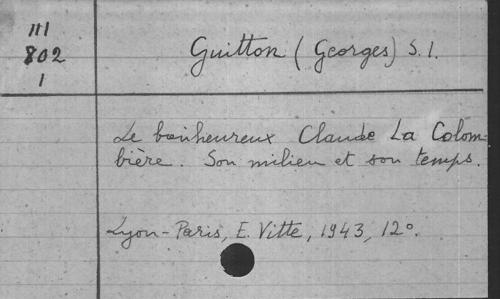 III
802
1
Guitton (Georges) S.I.
Le bienheureux Claude La Colom-
bière. Son milieu et son temps.
Lyon-Paris, E. Vitte, 1943, 12º.